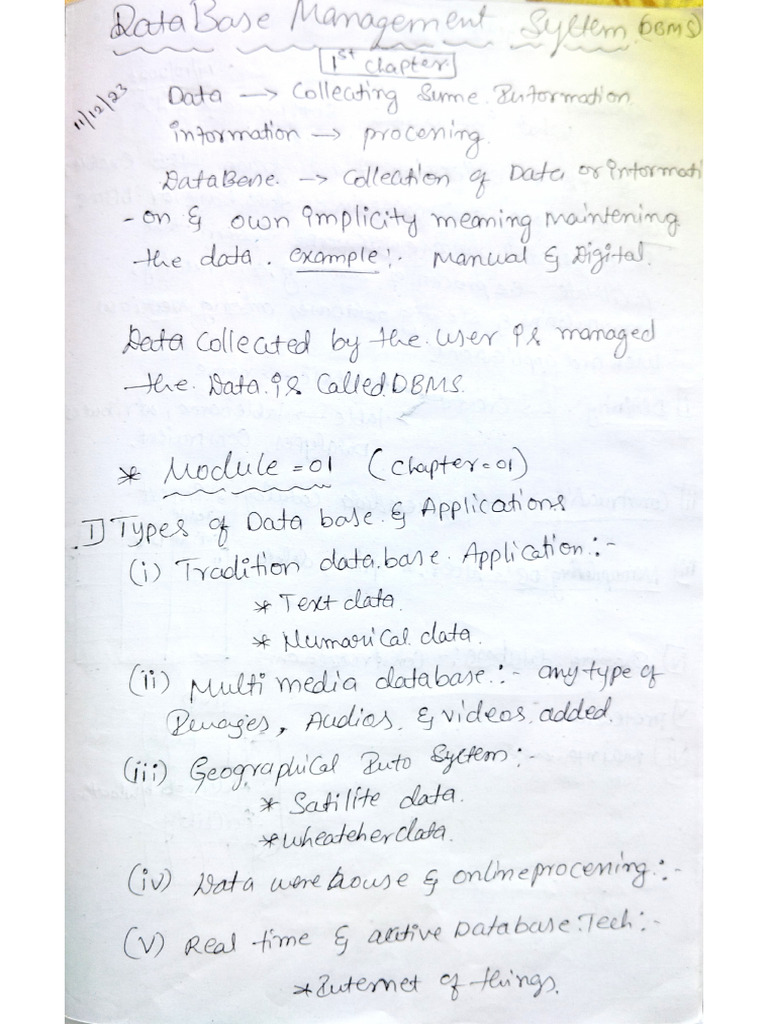 Data Base Management System (DBMS)
1st chapter
11/12/23
Data → Collecating Some Information
information → processing.
DataBase. → Colleation of Data or informati
-on & own implicity meaning maintening
the data. example:- Manual & Digital.
Data Colleated by the user is managed
the Data is Called DBMS.
* Module = 01 (Chapter = 01)
I) Types of Data base & Applications
(i) Tradition data base Application:-
* Text data
* Numarical data
(ii) Multi media database:- any type of
Images, Audios, & videos added.
(iii) Geographical Info System:-
* Satilite data.
* Wheateher data.
(iv) Data were house & online processing:-
(v) Real time & active Database Tech:-
* Internet of things.